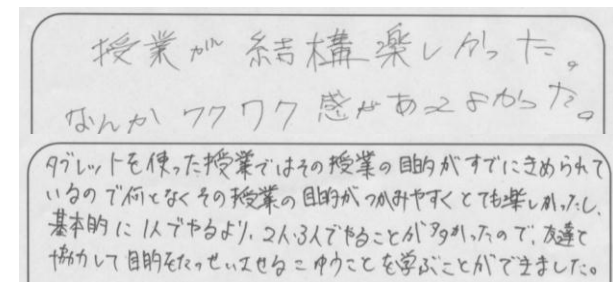 授業が結構楽しかった。
なんかワクワク感があってよかった。
タブレットを使った授業ではその授業の目的がすでにきめられて
いるので何となくその授業の目的がつかみやすくとても楽しかったし、
基本的に1人でやるより、2人、3人でやることが多かったので、友達と
協力して目的をたっせいさせるこゆうことを学ぶことができました。